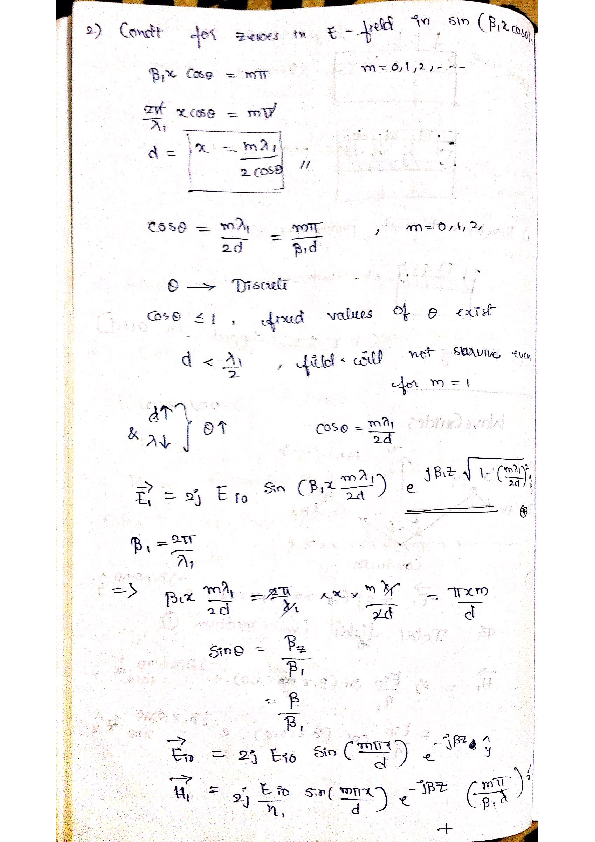 2) Condt for zeroes in E-field in sin (β₁x cosθ)
β₁x cosθ = mπ m=0,1,2,---
2π/λ₁ x cosθ = mπ
d = x = mλ₁/2cosθ //
cosθ = mλ₁/2d = mπ/β₁d , m=0,1,2,
θ → Discrete
cosθ ≤ 1 , fixed values of θ exist
d < λ₁/2 , field will not survive even
for m = 1
d↑ & λ↓ } θ↑ cosθ = mλ₁/2d
E₁ = 2j E₁₀ sin (β₁x mλ₁/2d) e^jβ₁z √1-(mλ₁/2d)²
β₁ = 2π/λ₁
=> β₁x mλ₁/2d = 2π/λ₁ × x × mλ₁/2d = πxm/d
sinθ = β_z/β₁
= β/β₁
E₁₀ = 2j E₁₀ sin (mπx/d) e^-jβz ŷ
H₁ = 2j E₁₀/η₁ sin (mπx/d) e^-jβz (mπ/β₁d)
+